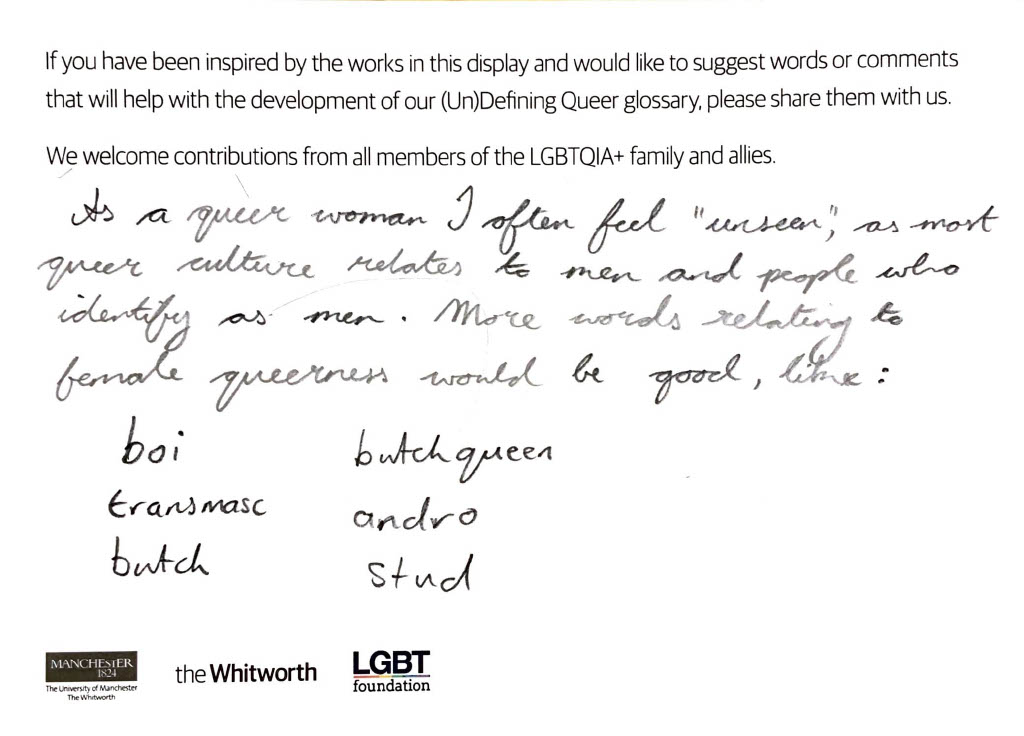 If you have been inspired by the works in this display and would like to suggest words or comments
that will help with the development of our (Un)Defining Queer glossary, please share them with us.
We welcome contributions from all members of the LGBTQIA+ family and allies.
As a queer woman I often feel "unseen", as most
queer culture relates to men and people who
identify as men. More words relating to
female queerness would be good, like:
boi
transmasc
butch
butch queen
andro
stud
MANCHESTER
1824
The University of Manchester
The Whitworth
the Whitworth
LGBT
foundation